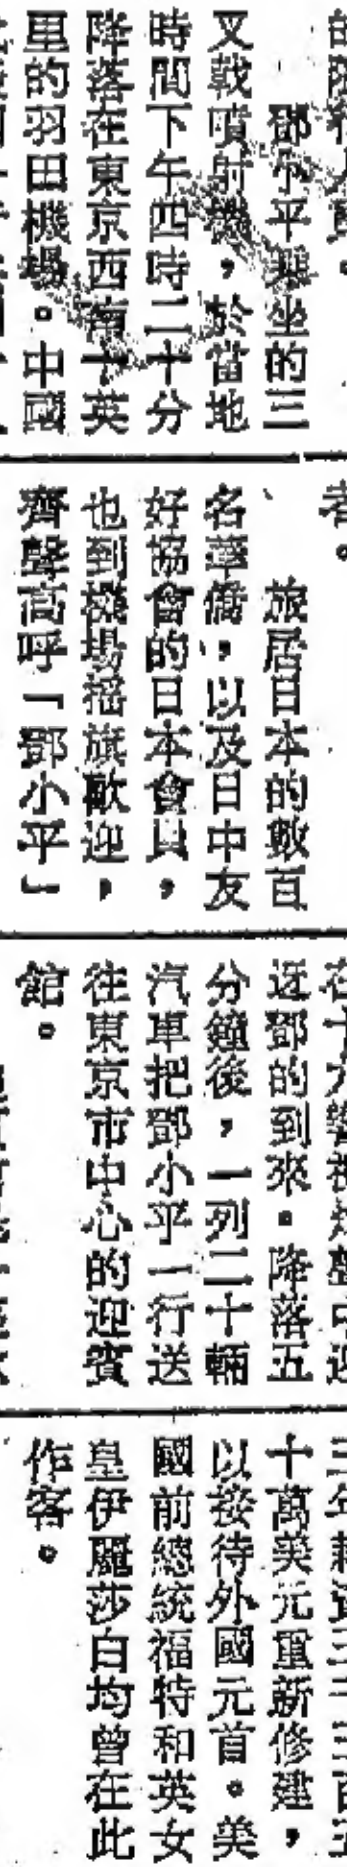 鄧小平乘坐的三
叉戟噴射機，於當地
時間下午四時二十分
降落在東京西南十英
里的羽田機場。中國
者。
旅居日本的數百
名華僑，以及日中友
好協會的日本會員，
也到機場搖旗歡迎，
齊聲高呼「鄧小平」
在十九響禮炮聲中迎
迓鄧的到來。降落五
分鐘後，一列二十輛
汽車把鄧小平一行送
往東京市中心的迎賓
館。
三年耗資三千三百五
十萬美元重新修建，
以接待外國元首。美
國前總統福特和英女
皇伊麗莎白均曾在此
作客。